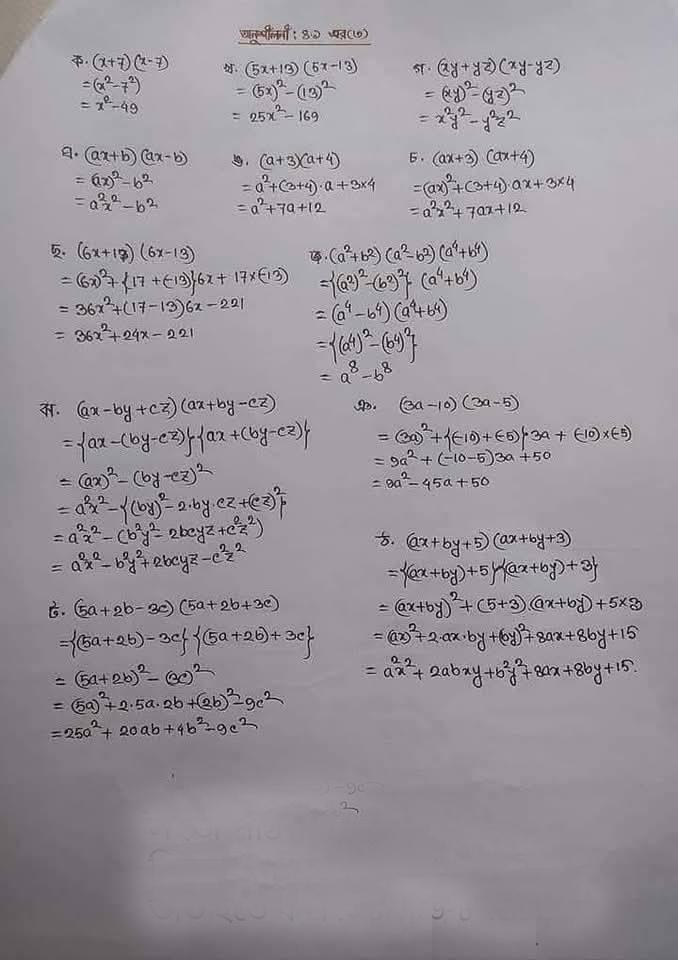 অনুশীলনী : ৪.১ এর (৩)
ক. (x+7) (x-7)
= (x²-7²)
= x²-49
খ. (5x+13) (5x-13)
= (5x)²-(13)²
= 25x²-169
গ. (xy+yz) (xy-yz)
= (xy)²-(yz)²
= x²y²-y²z²
ঘ. (ax+b) (ax-b)
= (ax)²-b²
= a²x²-b²
ঙ. (a+3)(a+4)
= a²+(3+4)·a+3×4
= a²+7a+12
চ. (ax+3) (ax+4)
= (ax)²+(3+4)·ax+3×4
= a²x²+7ax+12
ছ. (6x+17) (6x-13)
= (6x)²+{17+(-13)}6x+17×(-13)
= 36x²+(17-13)6x-221
= 36x²+24x-221
জ. (a²+b²) (a²-b²) (a⁴+b⁴)
= {(a²)²-(b²)²} (a⁴+b⁴)
= (a⁴-b⁴) (a⁴+b⁴)
= {(a⁴)²-(b⁴)²}
= a⁸-b⁸
ঝ. (ax-by+cz) (ax+by-cz)
= {ax-(by-cz)} {ax+(by-cz)}
= (ax)²-(by-cz)²
= a²x²-{(by)²-2·by·cz+(cz)²}
= a²x²-(b²y²-2bcyz+c²z²)
= a²x²-b²y²+2bcyz-c²z²
ঞ. (3a-10) (3a-5)
= (3a)²+{(-10)+(-5)}·3a+(-10)×(-5)
= 9a²+(-10-5)3a+50
= 9a²-45a+50
ট. (5a+2b-3c) (5a+2b+3c)
= {(5a+2b)-3c} {(5a+2b)+3c}
= (5a+2b)²-(3c)²
= (5a)²+2·5a·2b+(2b)²-9c²
= 25a²+20ab+4b²-9c²
ঠ. (ax+by+5) (ax+by+3)
= {(ax+by)+5} {(ax+by)+3}
= (ax+by)²+(5+3)·(ax+by)+5×3
= (ax)²+2·ax·by+(by)²+8ax+8by+15
= a²x²+2abxy+b²y²+8ax+8by+15.